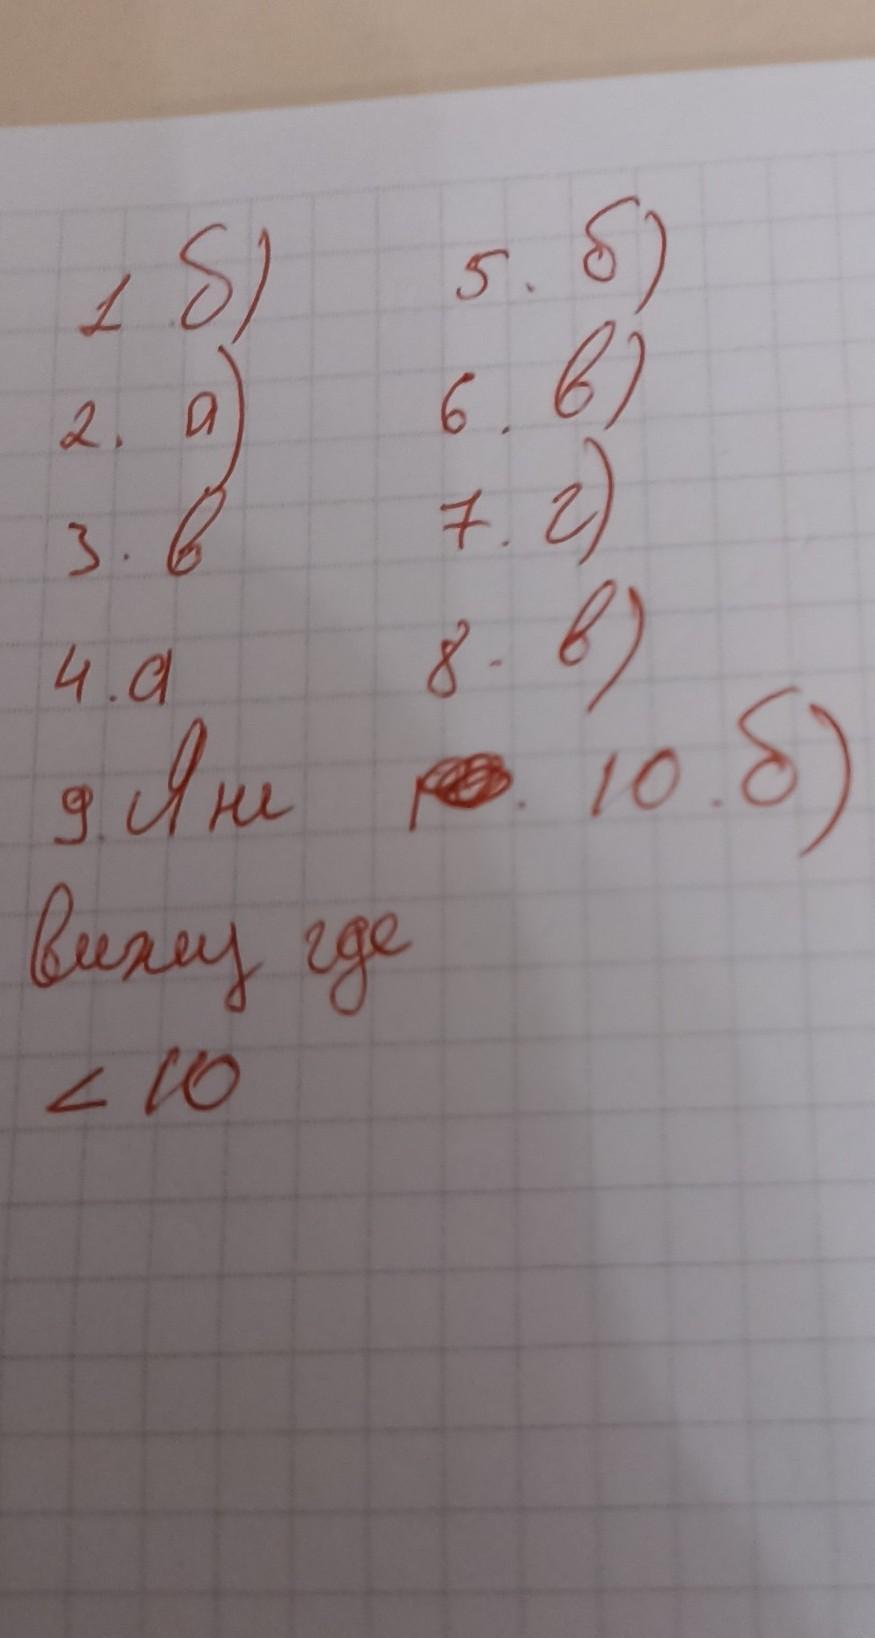 1 б) 5. б)
2. а) 6. в)
3. в 7. г)
4. а 8. в)
9. Я не 10. б)
вижу где
< 10